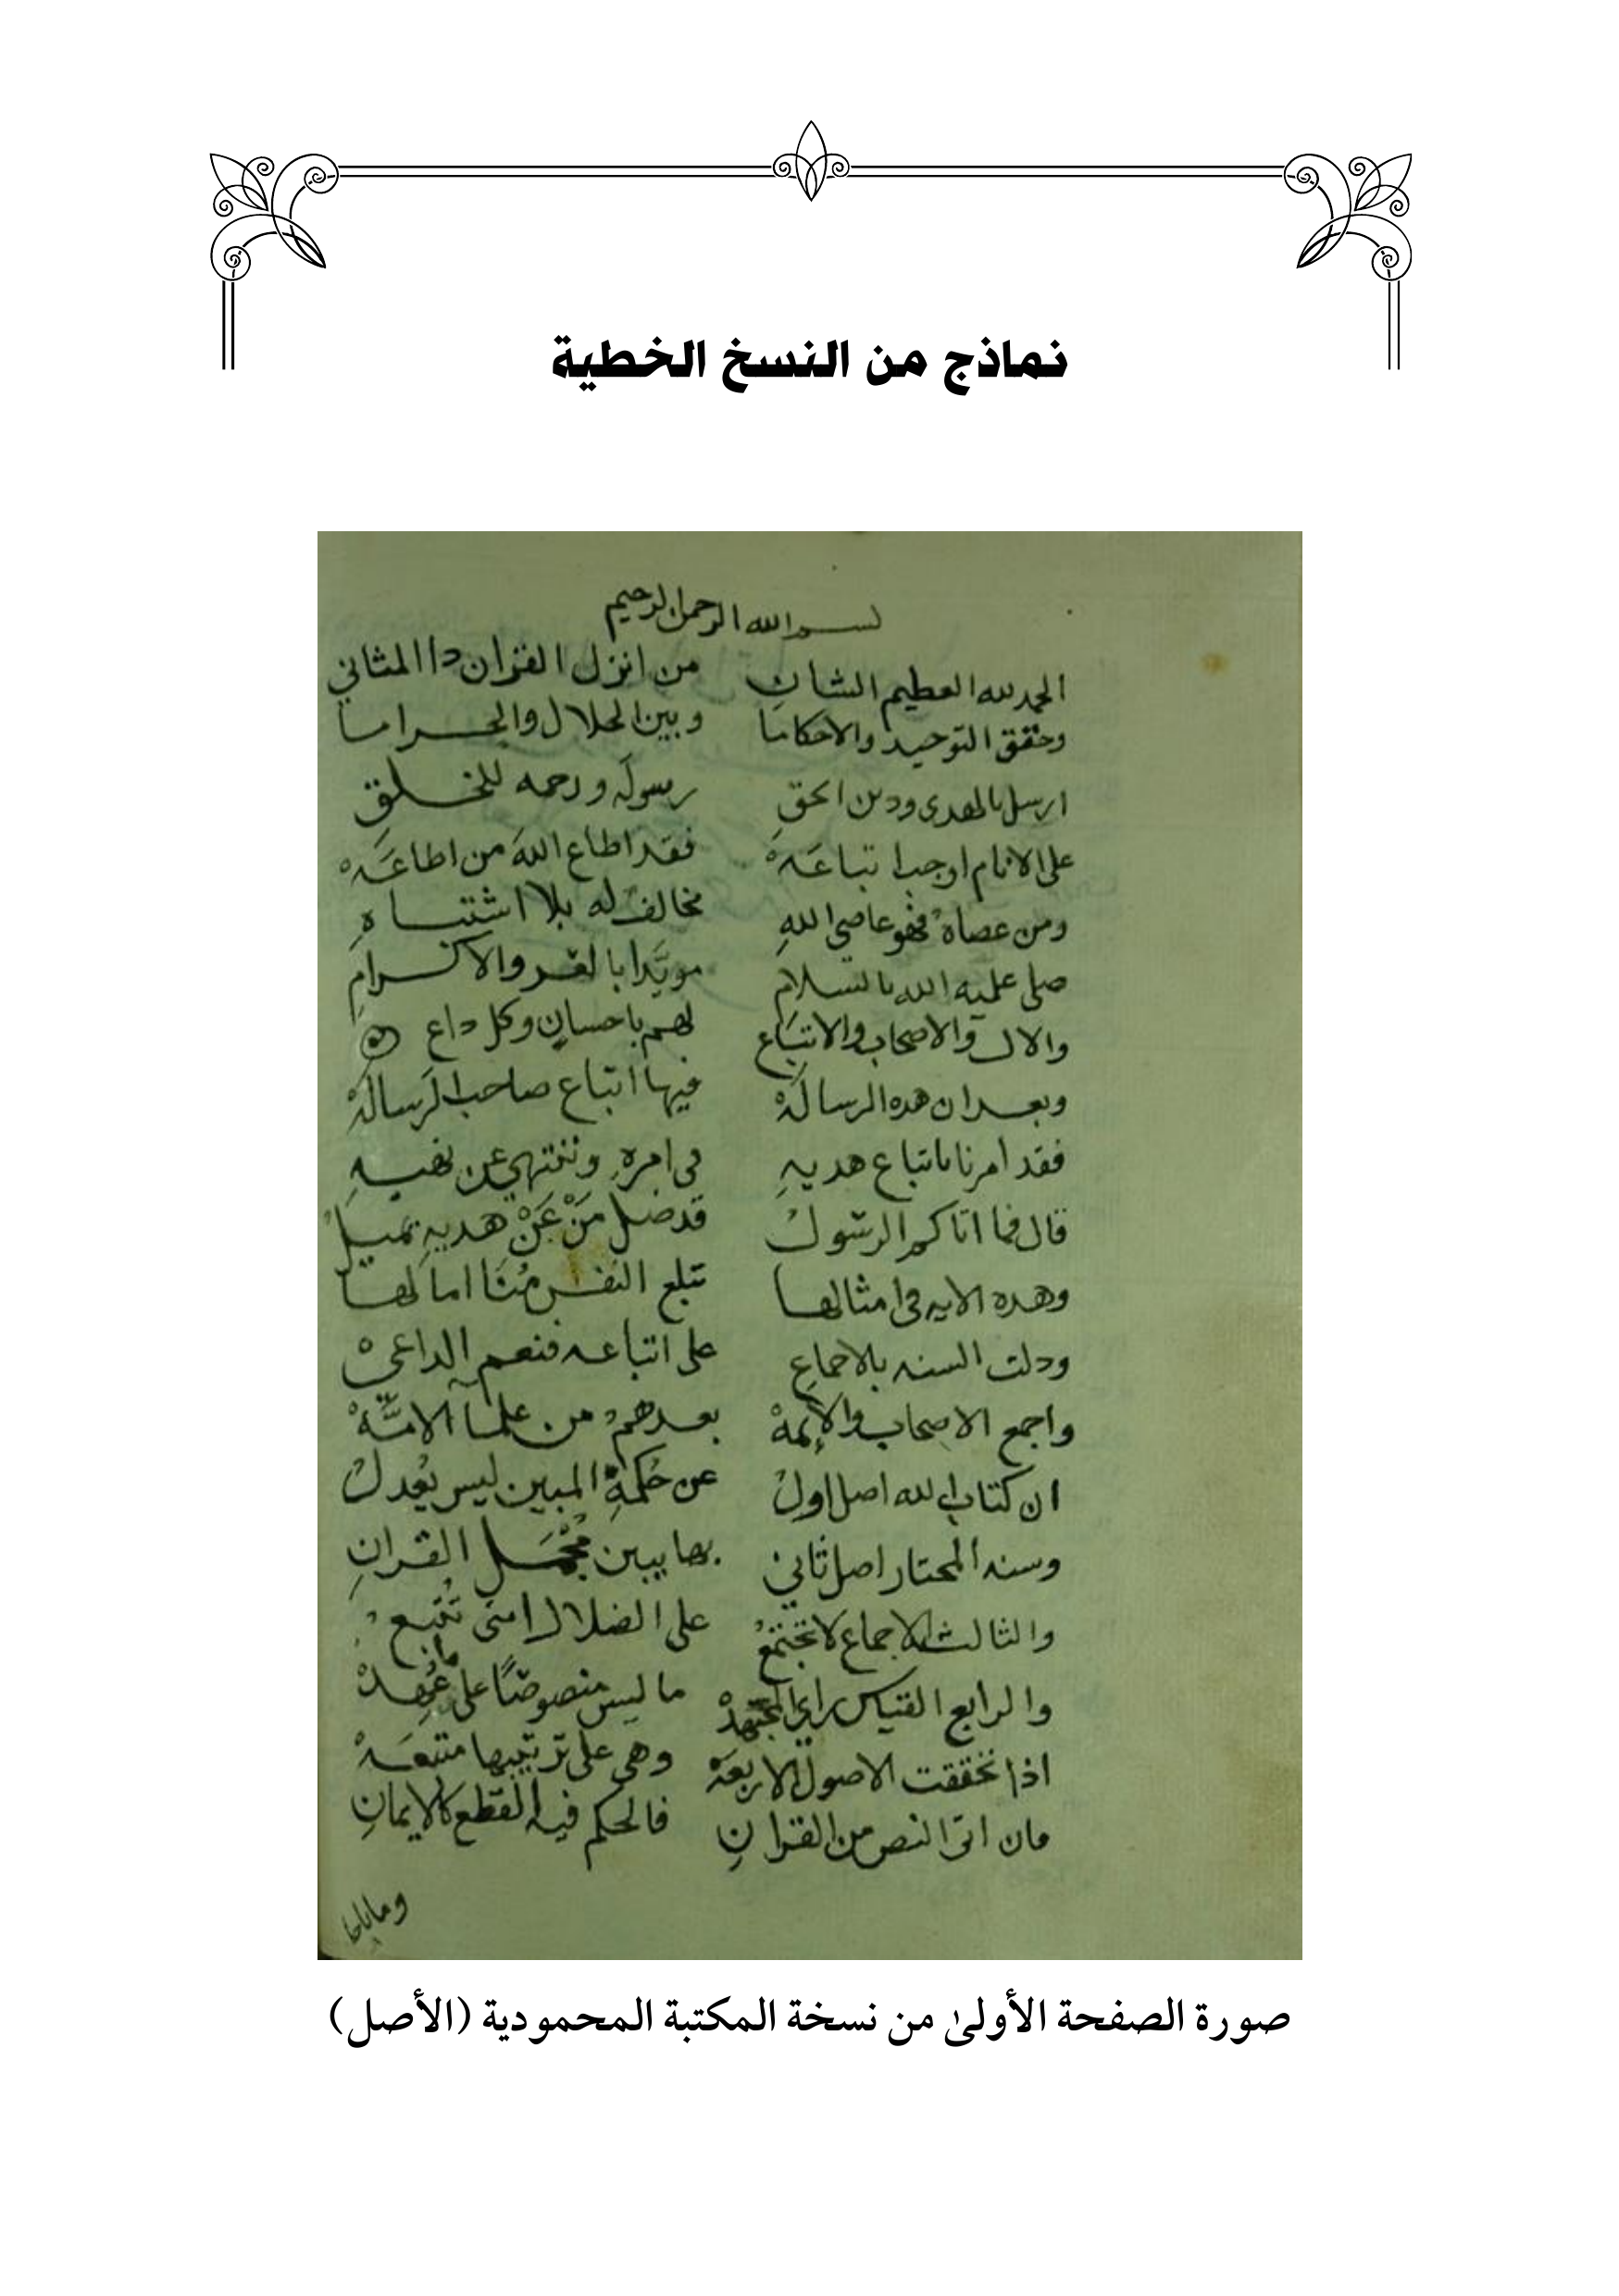 نماذج من النسخ الخطية
بسم الله الرحمن الرحيم
الحمد لله العظيم الشان من انزل القران دا المثاني
وحقق التوحيد والاحكاما وبين الحلال والحراما
ارسل بالهدى ودين الحق رسوله ورحمه للخلق
على الانام اوجب اتباعَهْ فقد اطاع اللهَ من اطاعَهْ
ومن عصاهُ فهو عاصي اللهِ مخالفٌ له بلا اشتباهِ
صلى عليه الله بالسلامِ مويَّدا بالعز والاكرامِ
والال والاصحاب والاتباعِ لهم باحسانٍ وكل داع
وبعد ان هده الرسالَهْ فيها اتباع صاحب الرسالَهْ
فقد امرنا باتباع هديهِ في امرهِ وننتهي عن نهيهِ
قال فما اتاكم الرسولُ قد ضل مَنْ عَنْ هديهِ يميلُ
وهده الايه في امثالها تبلغ النفس مُنَا امالها
ودلت السنه بالاجماعِ على اتباعه فنعم الداعي
واجمع الاصحاب والايمهْ بعدهمُ من علمآ الامَّهْ
ان كتاب الله اصل اولُ عن حُكمهِ المبين ليس يُعدلُ
وسنه المختار اصل ثاني بها يبين مُجْمَل القرانِ
والثالث الاجماع لا تجتمعُ على الضلال امتى تتبعُ
والرابع القياس راي المجتهدْ ما ليس منصوصًا على ما عُهِدْ
اذا تحققت الاصول الاربعَهْ وهي على ترتيبها متبعَهْ
فان اتى النص من القرانِ فالحكم فيه القطع كالايمانِ
صورة الصفحة الأولىٰ من نسخة المكتبة المحمودية (الأصل)